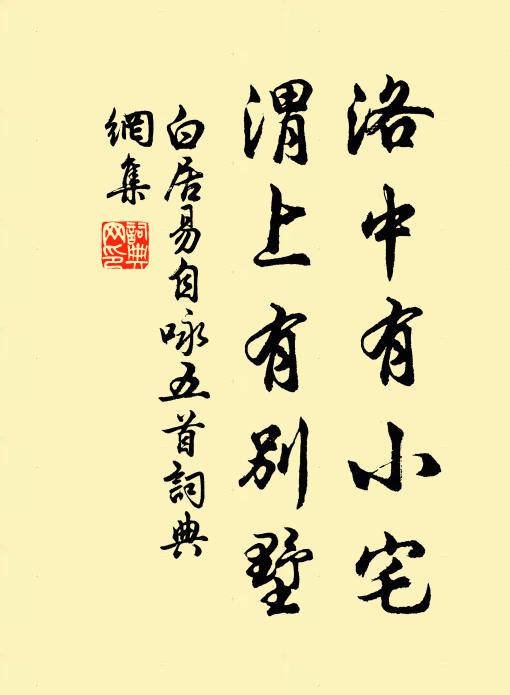 洛中有小宅
渭上有別墅
白居易自咏五首詞典
網集
詞典
网印